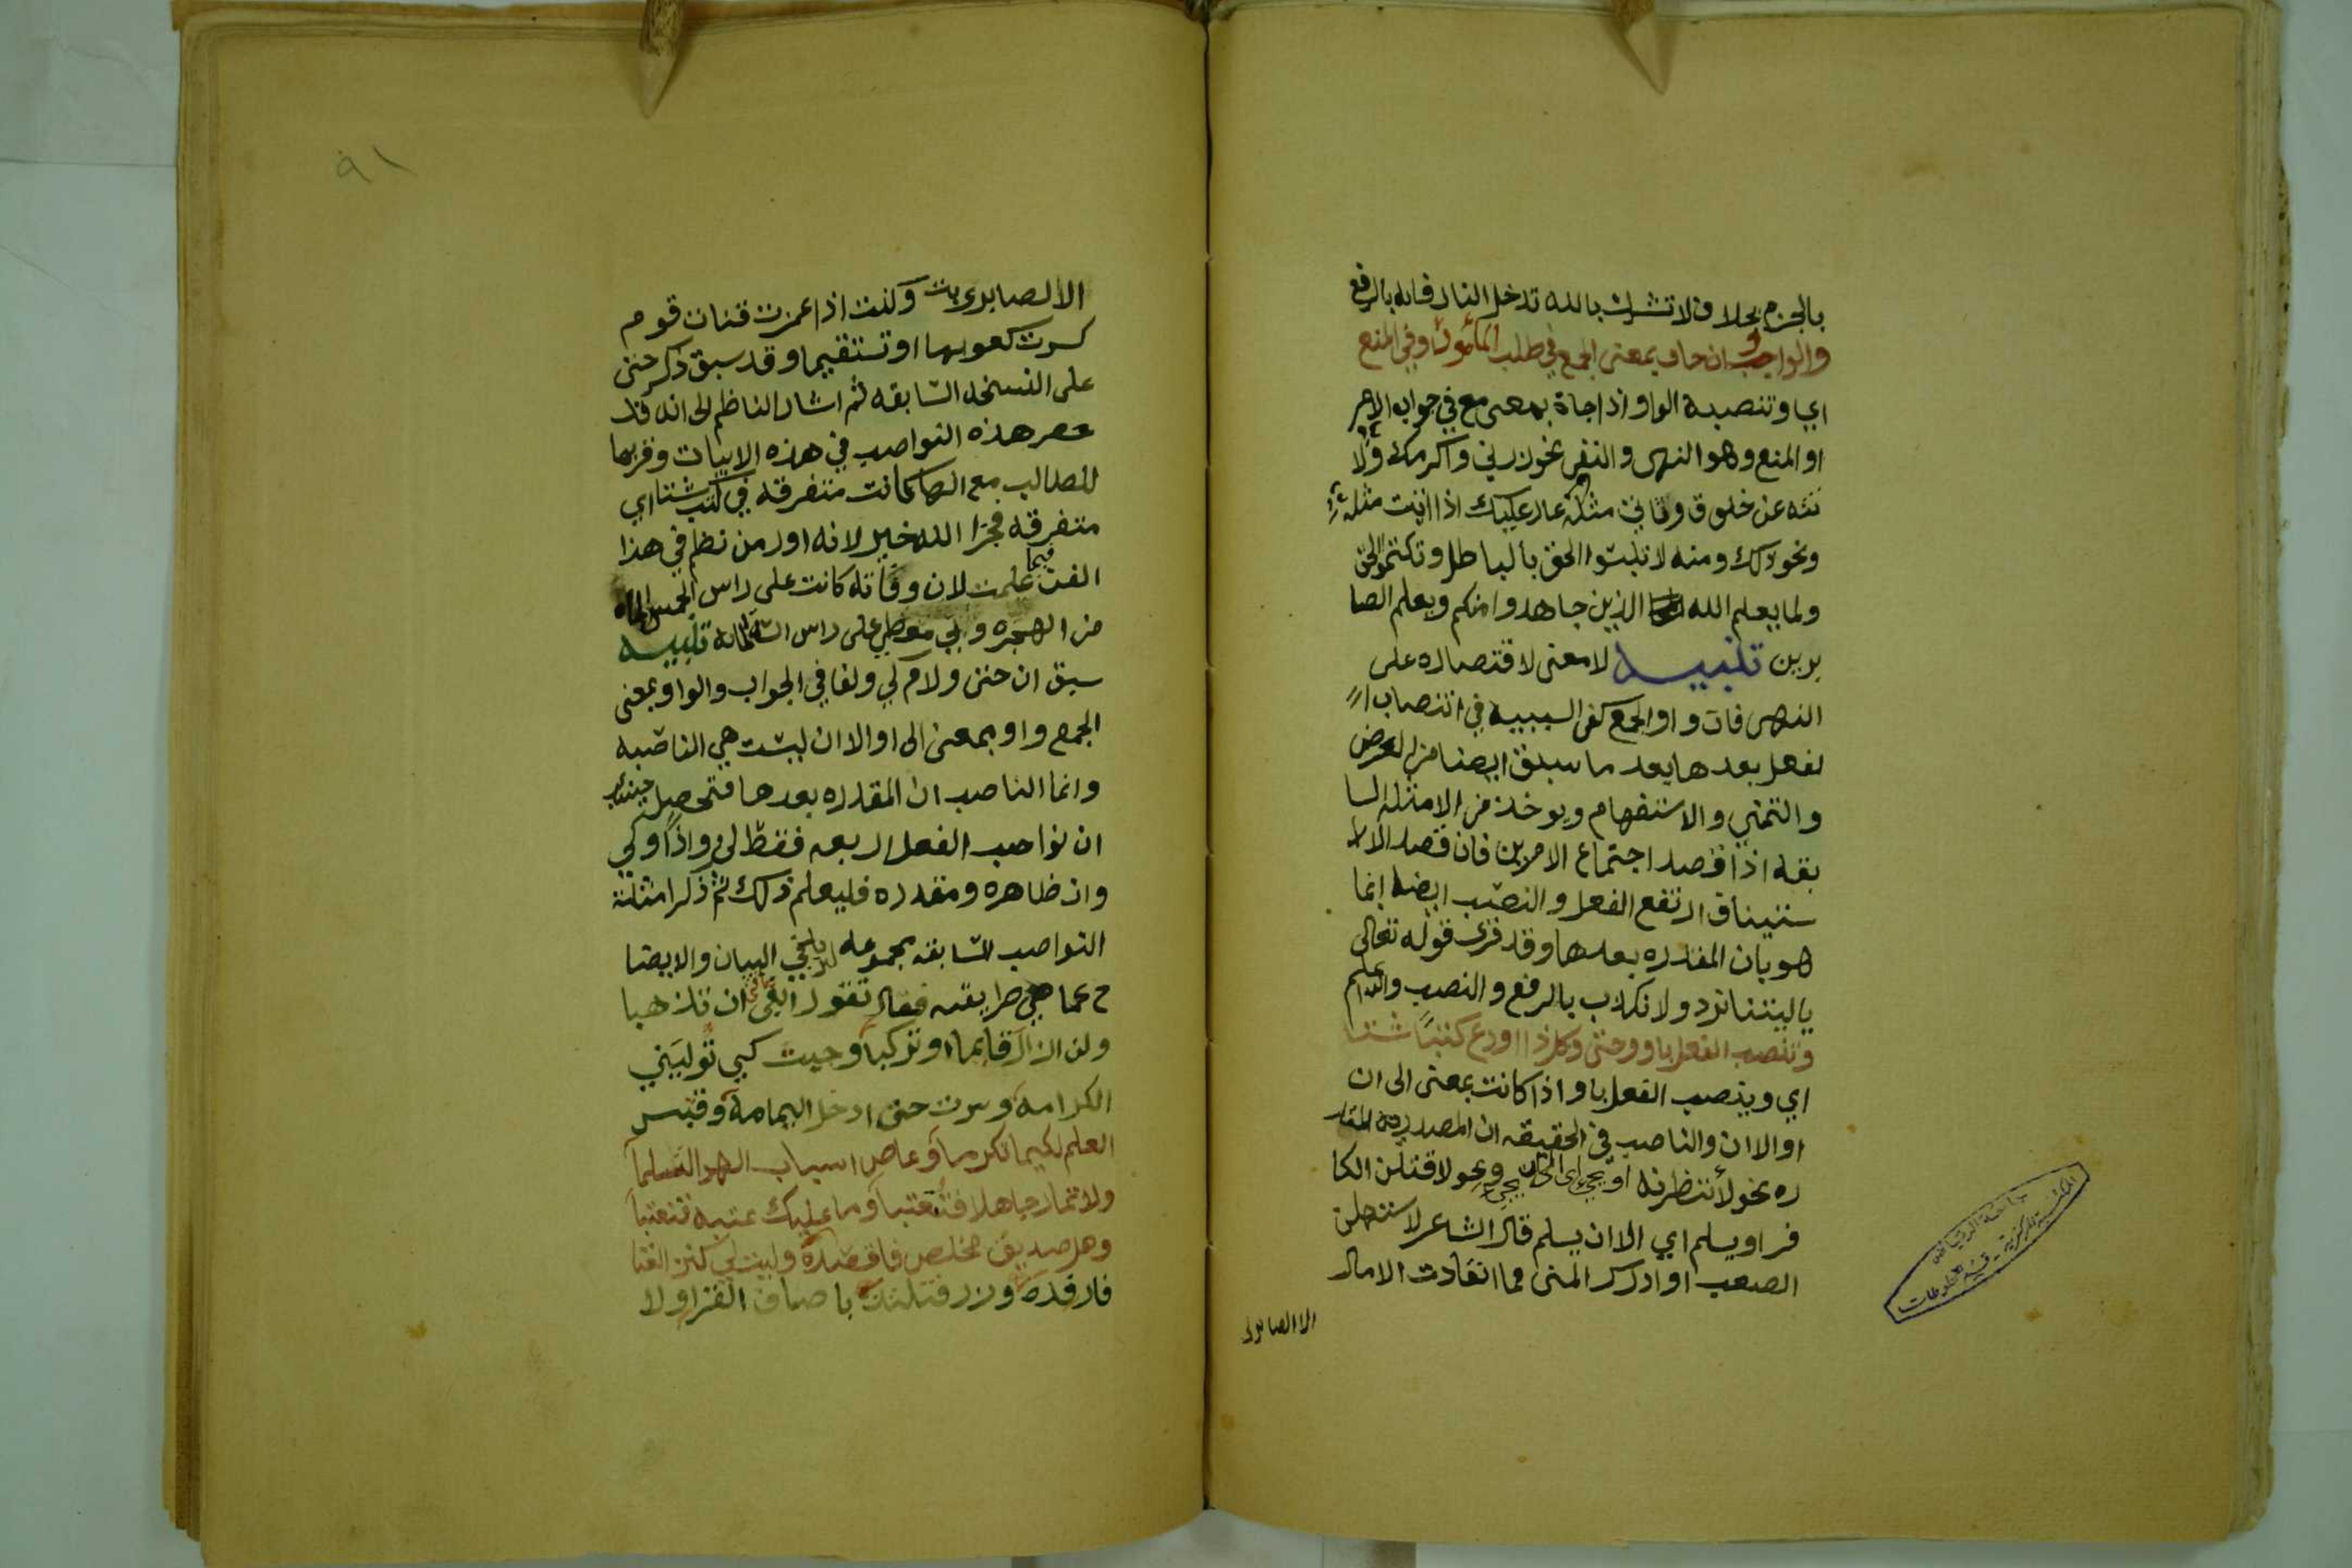 بالجزم بخلاف لا تشرك بالله تدخل النار فانه بالرفع
والواو ان جات بمعنى الجمع في طلب المأمور او في المنع
اي وتنصبه الواو اذا جاة بمعنى مع في جواب الامر
او المنع وهو النهى والنفى نحو زرني واكرمك ولا
تنه عن خلوق وتاتي مثله عار عليك اذا اتيت مثله
ونحو ذلك ومنه لا تلبسوا الحق بالباطل وتكتموا الحق
ولما يعلم الله الذين جاهدوا منكم ويعلم الصا
برين تنبيه لا معنى لاقتصاره على
النهى فان واو الجمع كفى السببيه في انتصاب ا
لفعل بعدها بعد ما سبق ايضا من العرض
والتمني والاستفهام ويوخذ من الامثله السا
بقه اذا قصد اجتماع الامرين فان قصد الا
ستيناف ارتفع الفعل والنصب ايضا انما
هو بان المقدره بعدها وقد قرى قوله تعالى
يا ليتنا نرد ولا نكذب بالرفع والنصب والله اعلم
وتنصب الفعل باو وحتى وكل ذا اودع كتبا شتا
اي وينصب الفعل باو اذا كانت بمعنى الى ان
او الا ان والناصب في الحقيقه ان المصدريه المقد
ره نحو لأنتظرنه او يجي اي الى ان يجي ونحو لاقتلن الكا
فر او يسلم اي الا ان يسلم قال الشاعر لاستسهلن
الصعب او ادرك المنى فما انقادت الامال
الا الصابرى
٩١
الا لصابرى بت وكنت اذا غمزت قنات قوم
كسرت كعوبها او تستقيما وقد سبق ذكر حتى
على النسخه السابقه ثم اشار الناظم الى انه قد
حصر هذه النواصب في هذه الابيات وقربها
للطالب مع انها كانت متفرقه في كتب شتا اي
متفرقه فجزا الله خير لانه اول من نظم في هذا
الفن فيما علمت لان وفاته كانت على راس الخمس المائه
من الهجره وابن معطي على راس الستمائه تنبيه
سبق ان حتى ولام كي والفا في الجواب والواو بمعنى
الجمع واو بمعنى الى او الا ان ليست هي الناصبه
وانما الناصب ان المقدره بعدها فتحصل حينئذ
ان نواصب الفعل اربعه فقط لن واذا وكي
وان ظاهره ومقدره فليعلم ذلك ثم ذكر امثلة
النواصب السابقه مجموعه البيان والايضا
ح كما هي طريقته فقال تقول ابغى يا فتى ان تذهبا
ولن ازال قايما او تركبا وجيت كي توليني
الكرامه وسرت حتى ادخل اليمامه وقتبس
العلم لكيما تكرما وعاص اسباب الهوا لتسلما
ولا تمار جاهلا فتتعبا وما عليك عتبه فتعتبا
وهل صديق مخلص فاقصده وليت لي كنز الغنا
فارفده وزر فتلتذ باصناف القرا ولا
جامعة الرياض
المكتبة المركزية - قسم المخطوطات